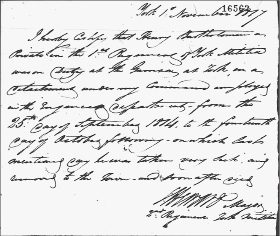 16562
York 1st November 1817
I hereby Certify that Henry Bartholomew a
Private in the 1st Regiment of York Militia
was on duty at the Garrison, at York, on a
detachment under my Command employed
in the Engineers department from the
25th day of September 1814, to the fourteenth
day of October following - on which last
mentioned day he was taken very sick, and
removed to the Town - and soon after died
Major
2d Regiment York Militia